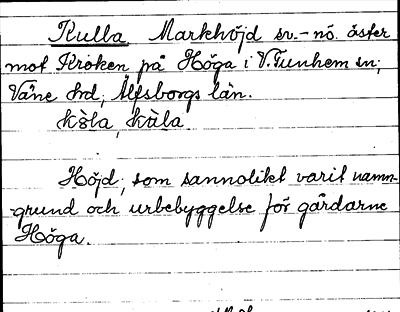 Kulla Markhöjd sv.-nö. öster
mot Kroken på Höga i V. Tunhem sn;
Väne hd, Älfsborgs län.
kòla, kùla
Höjd, som sannolikt varit namn-
grund och urbebyggelse för gårdarne
Höga.